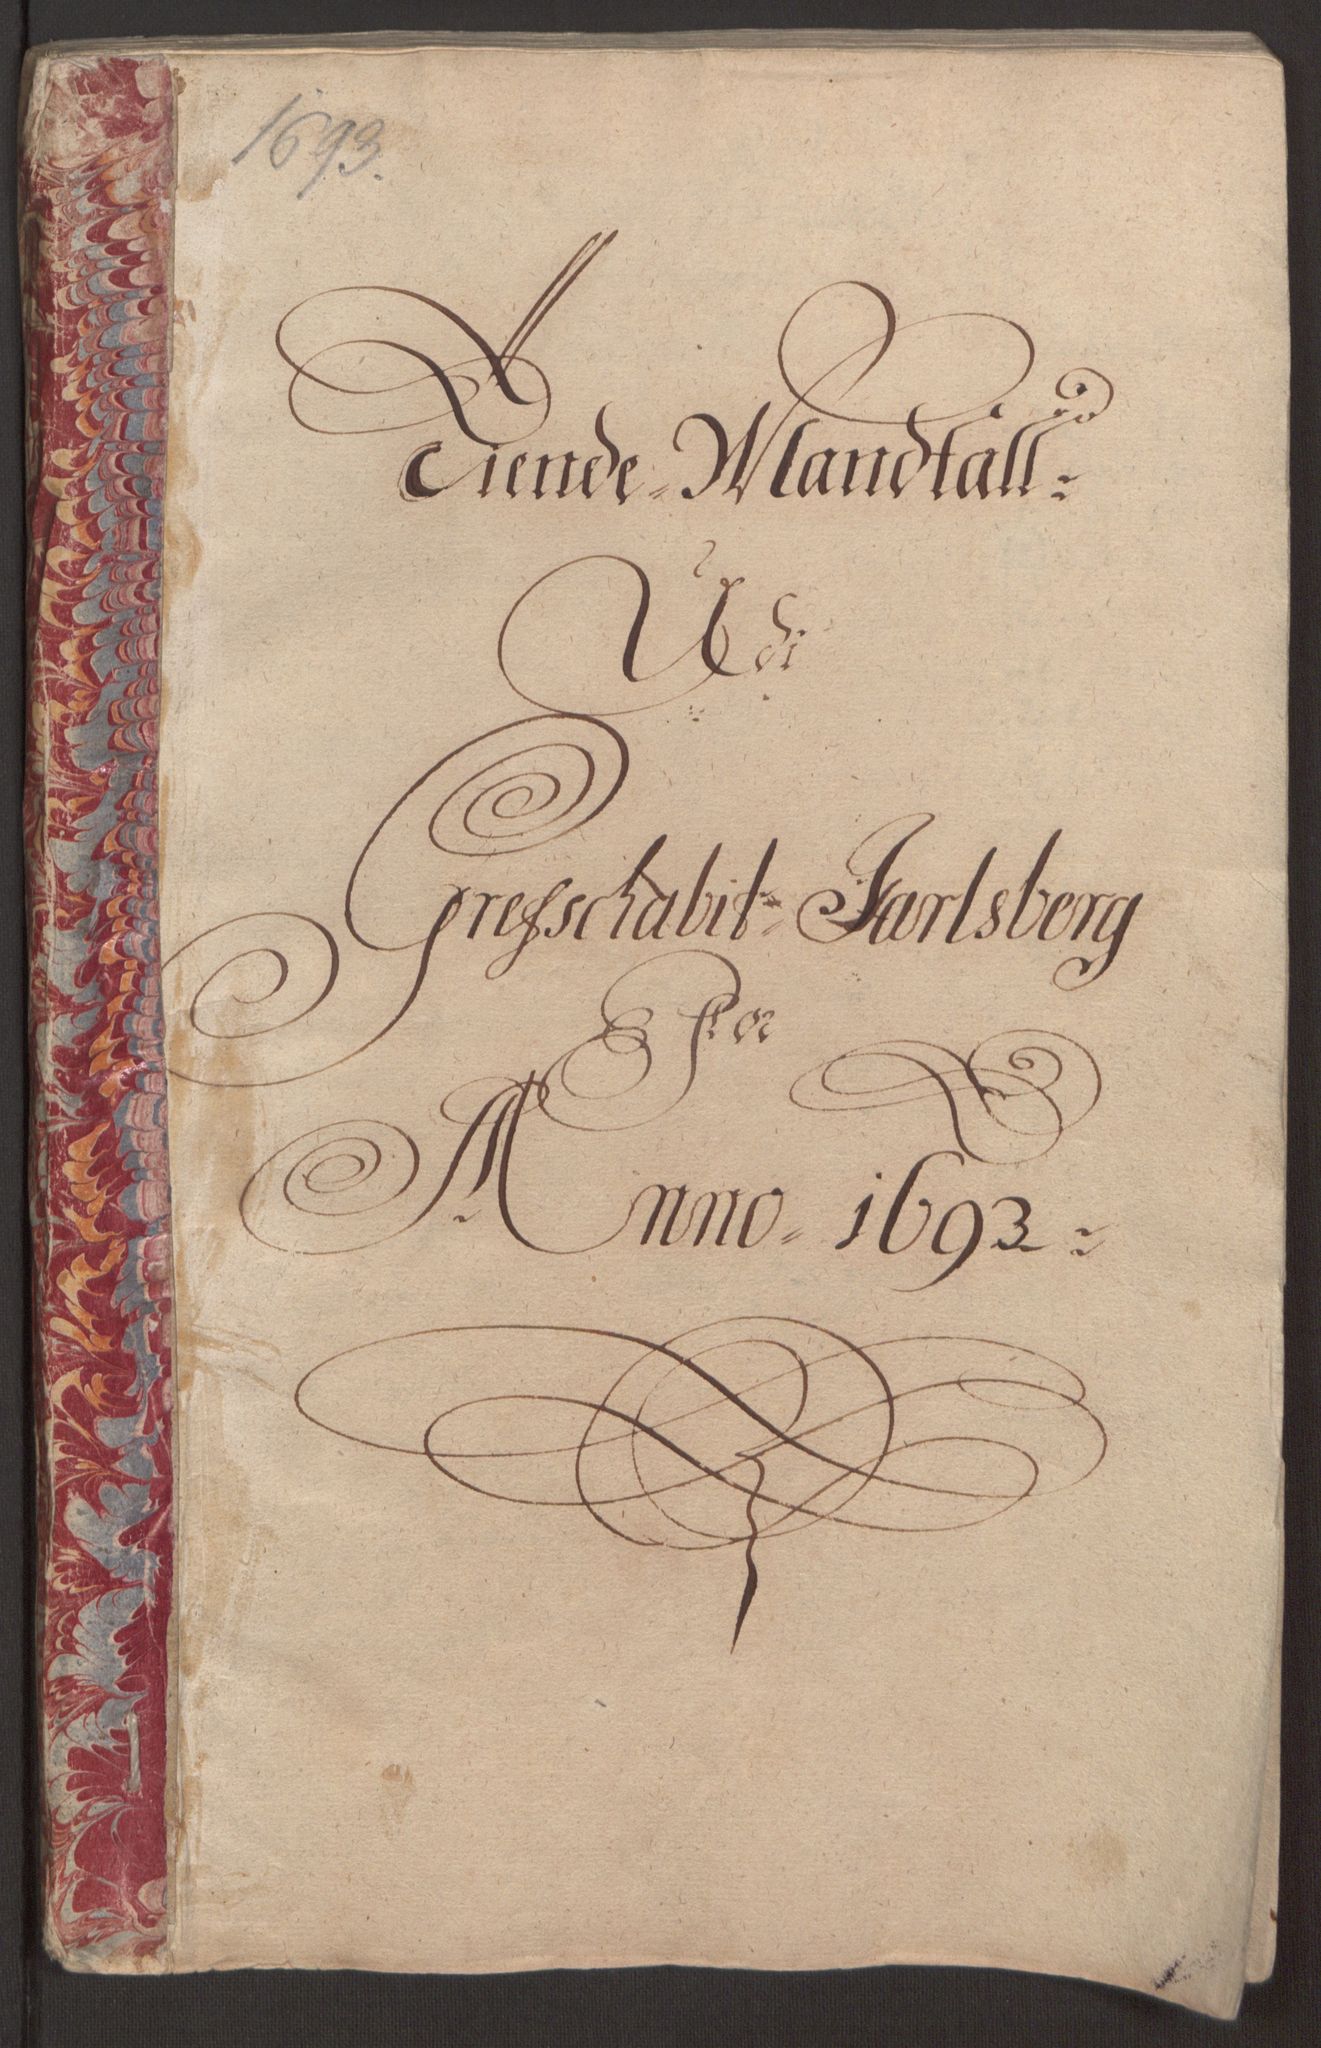 1693.
Tiende-Mandtall
Udi
Grefschabit-Jarlsberg
for
Anno-1693